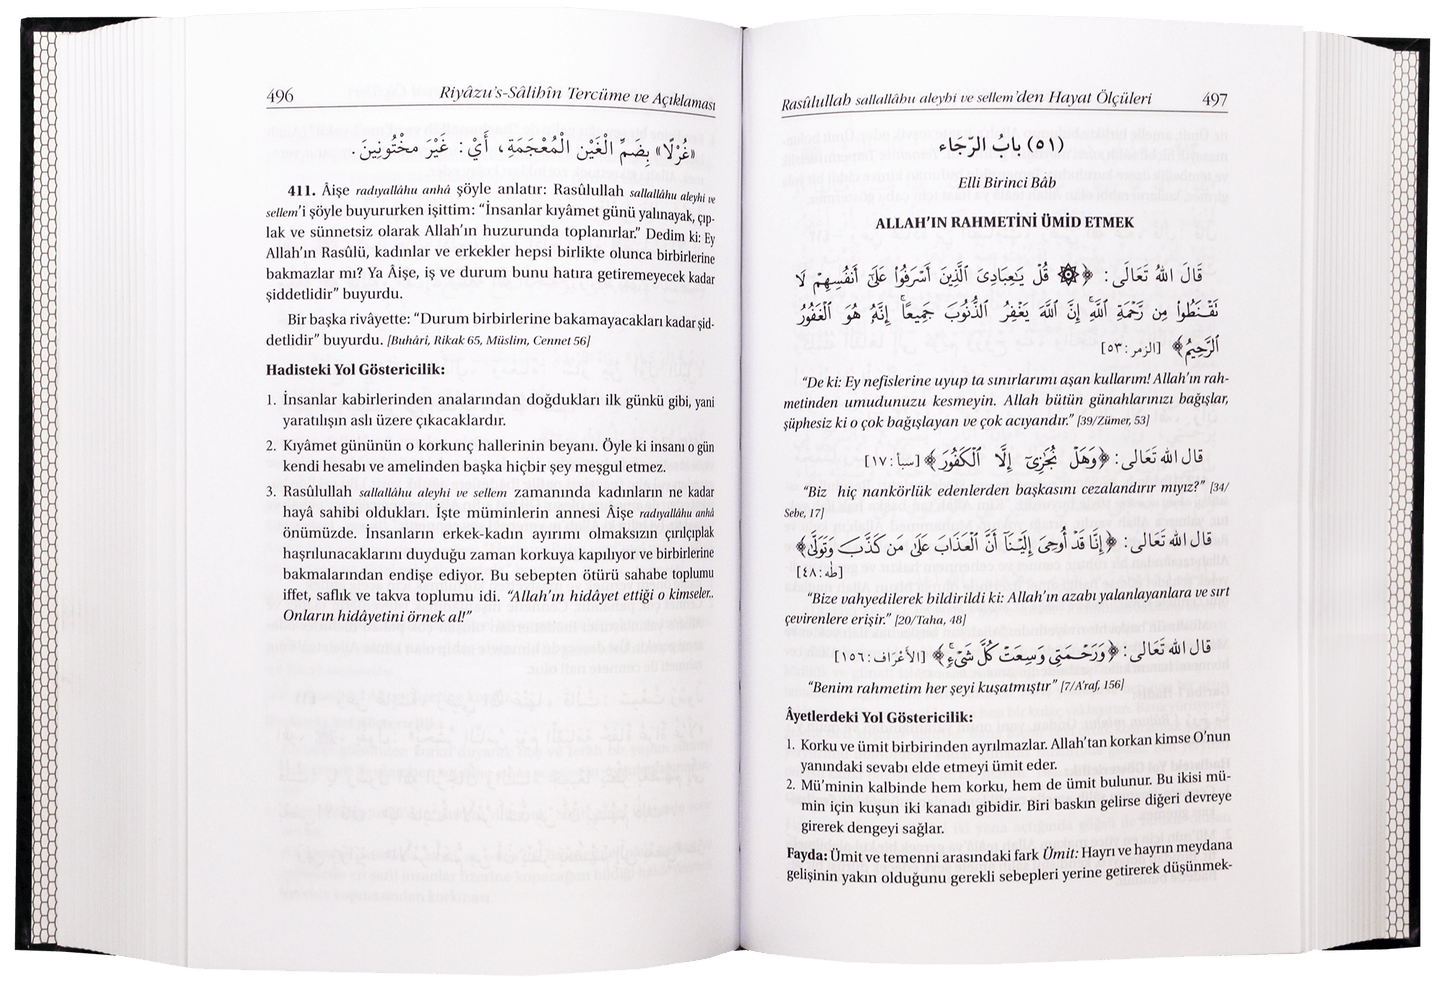 496 Riyâzu's-Sâlihîn Tercüme ve Açıklaması
«غُرْلًا» بِضَمِّ الْغَيْنِ الْمُعْجَمَةِ، أَيْ: غَيْرَ مَخْتُونِينَ.
411. Âişe radıyallâhu anhâ şöyle anlatır: Rasûlullah sallallâhu aleyhi ve
sellem'i şöyle buyururken işittim: “İnsanlar kıyâmet günü yalınayak, çıp-
lak ve sünnetsiz olarak Allah'ın huzurunda toplanırlar.” Dedim ki: Ey
Allah'ın Rasûlü, kadınlar ve erkekler hepsi birlikte olunca birbirlerine
bakmazlar mı? Ya Âişe, iş ve durum bunu hatıra getiremeyecek kadar
şiddetlidir” buyurdu.
Bir başka rivâyette: “Durum birbirlerine bakamayacakları kadar şid-
detlidir” buyurdu. [Buhâri, Rikak 65, Müslim, Cennet 56]
Hadisteki Yol Göstericilik:
1. İnsanlar kabirlerinden analarından doğdukları ilk günkü gibi, yani
yaratılışın aslı üzere çıkacaklardır.
2. Kıyâmet gününün o korkunç hallerinin beyanı. Öyle ki insanı o gün
kendi hesabı ve amelinden başka hiçbir şey meşgul etmez.
3. Rasûlullah sallallâhu aleyhi ve sellem zamanında kadınların ne kadar
hayâ sahibi oldukları. İşte müminlerin annesi Âişe radıyallâhu anhâ
önümüzde. İnsanların erkek-kadın ayırımı olmaksızın çırılçıplak
haşrılunacaklarını duyduğu zaman korkuya kapılıyor ve birbirlerine
bakmalarından endişe ediyor. Bu sebepten ötürü sahabe toplumu
iffet, saflık ve takva toplumu idi. “Allah'ın hidâyet ettiği o kimseler..
Onların hidâyetini örnek al!”
Rasûlullah sallallâhu aleyhi ve sellem'den Hayat Ölçüleri 497
(٥١) بابُ الرَّجَاء
Elli Birinci Bâb
ALLAH'IN RAHMETİNİ ÜMİD ETMEK
قَالَ اللهُ تَعَالَى: ﴿۞ قُلْ يَـٰعِبَادِىَ ٱلَّذِينَ أَسْرَفُوا۟ عَلَىٰٓ أَنفُسِهِمْ لَا
تَقْنَطُوا۟ مِن رَّحْمَةِ ٱللَّهِ ۚ إِنَّ ٱللَّهَ يَغْفِرُ ٱلذُّنُوبَ جَمِيعًا ۚ إِنَّهُۥ هُوَ ٱلْغَفُورُ
ٱلرَّحِيمُ﴾ [الزمر: ٥٣]
“De ki: Ey nefislerine uyup ta sınırlarımı aşan kullarım! Allah'ın rah-
metinden umudunuzu kesmeyin. Allah bütün günahlarınızı bağışlar,
şüphesiz ki o çok bağışlayan ve çok acıyandır.” [39/Zümer, 53]
قال الله تَعَالى: ﴿وَهَلْ نُجَـٰزِىٓ إِلَّا ٱلْكَفُورَ﴾ [سبأ: ١٧]
“Biz hiç nankörlük edenlerden başkasını cezalandırır mıyız?” [34/
Sebe, 17]
قال الله تَعَالى: ﴿إِنَّا قَدْ أُوحِىَ إِلَيْنَآ أَنَّ ٱلْعَذَابَ عَلَىٰ مَن كَذَّبَ وَتَوَلَّىٰ﴾
[طه: ٤٨]
“Bize vahyedilerek bildirildi ki: Allah'ın azabı yalanlayanlara ve sırt
çevirenlere erişir.” [20/Taha, 48]
قال الله تَعَالى: ﴿وَرَحْمَتِى وَسِعَتْ كُلَّ شَىْءٍ ۚ﴾ [الأَعْرَاف: ١٥٦]
“Benim rahmetim her şeyi kuşatmıştır” [7/A'raf, 156]
Âyetlerdeki Yol Göstericilik:
1. Korku ve ümit birbirinden ayrılmazlar. Allah'tan korkan kimse O'nun
yanındaki sevabı elde etmeyi ümit eder.
2. Mü'minin kalbinde hem korku, hem de ümit bulunur. Bu ikisi mü-
min için kuşun iki kanadı gibidir. Biri baskın gelirse diğeri devreye
girerek dengeyi sağlar.
Fayda: Ümit ve temenni arasındaki fark Ümit: Hayrı ve hayrın meydana
gelişinin yakın olduğunu gerekli sebepleri yerine getirerek düşünmek-